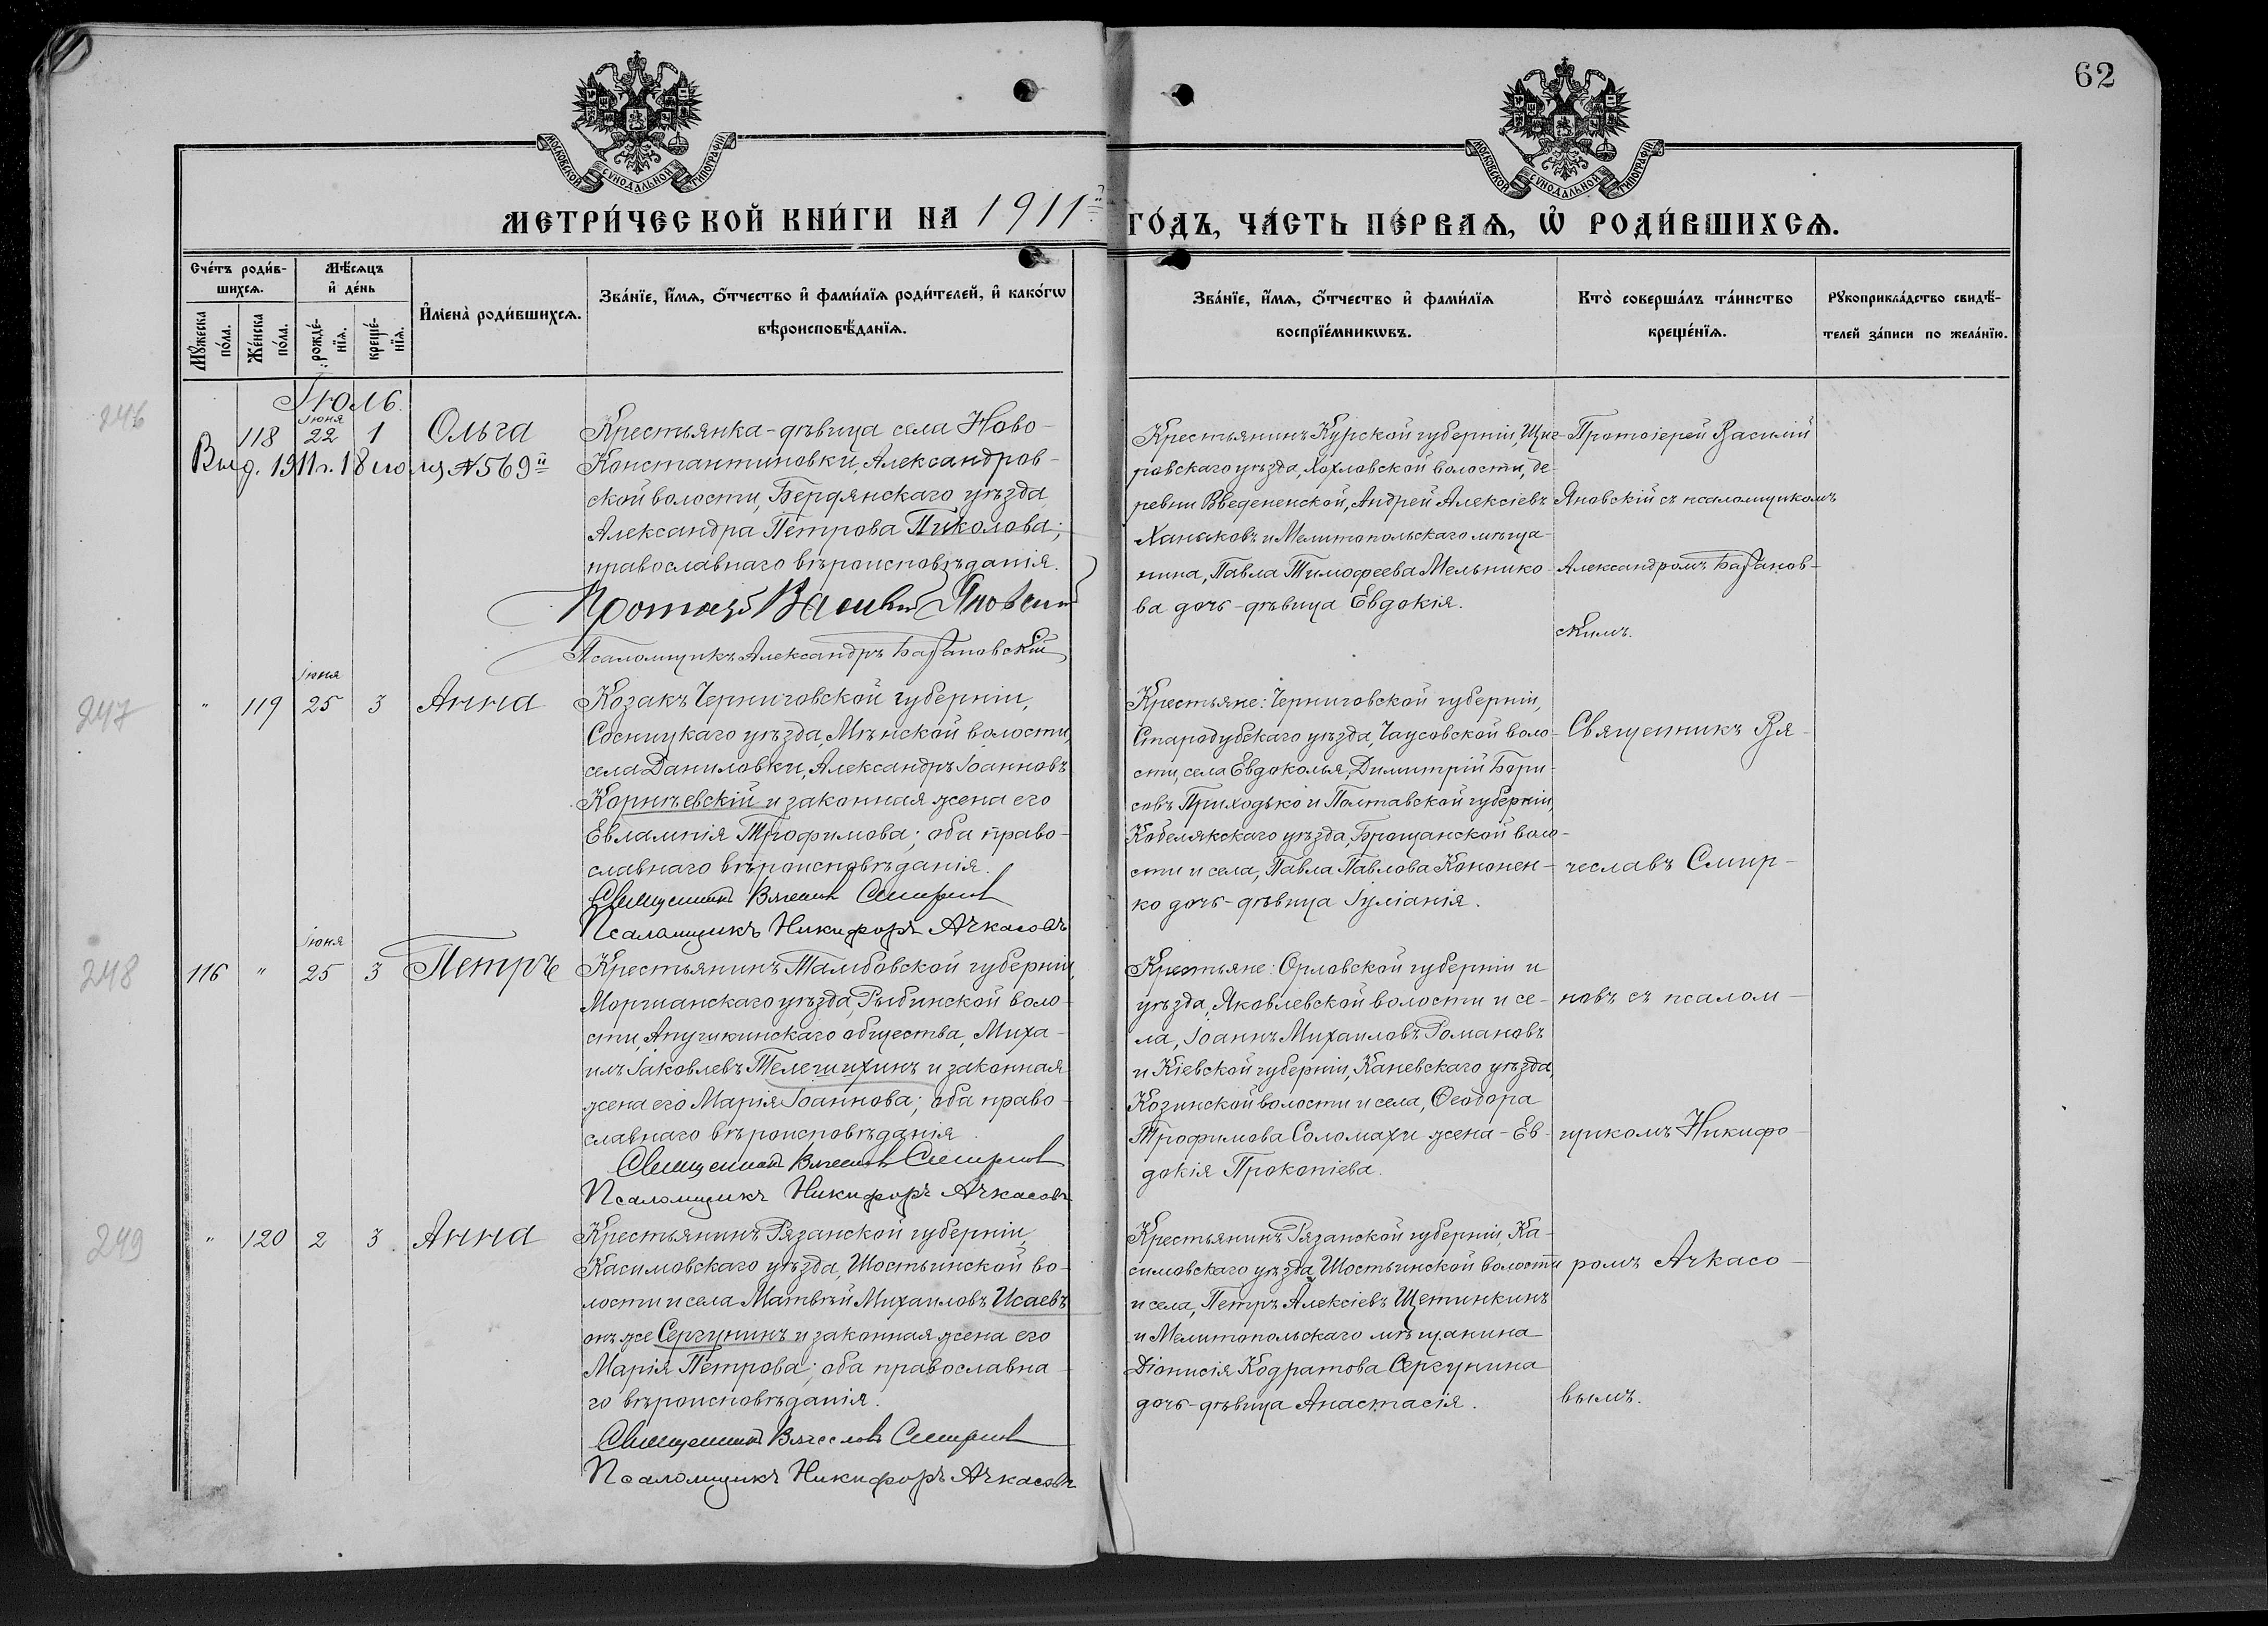 62
МОСКОВСКОЙ СУНОДАЛЬНОЙ ТИПОГРАФІИ
МОСКОВСКОЙ СУНОДАЛЬНОЙ ТИПОГРАФІИ
МЕТРИ́ЧЕСКОЙ КНИ́ГИ НА 1911й ГО́ДЪ, ЧА́СТЬ ПЕ́РВАѦ, Ѡ҆ РОДИ́ВШИХСѦ.
Сче́тъ роди́в-
шихсѧ.
Мѣ́сѧцъ
и҆ де́нь
И҆мена̀ роди́вшихсѧ.
Зва́нїе, и҆́мѧ, ѻ҆́тчество и҆ фами́лїѧ роди́телей, и҆ како́гѡ
вѣроисповѣ́данїѧ.
Мꙋ́жеска
по́ла.
Же́нска
по́ла.
рожде́-
нїѧ.
креще́-
нїѧ.
Зва́нїе, и҆́мѧ, ѻ҆́тчество и҆ фами́лїѧ
воспрїе́мникѡвъ.
Кто̀ соверша́лъ та́инство
креще́нїѧ.
Рꙋкоприкла́дство свидѣ́-
телей за́писи по жела́нїю.
Іюль
246
118 Іюня 22 1 Ольга
Выд. 1911 г. 18 іюля №569й
Крестьянка-дѣвица села Ново-
Константиновки, Александров-
ской волости, Бердянскаго уѣзда
Александра Петрова Пиколова;
православнаго вѣроисповѣданія.
Протоіер. Василій Яновскій
Псаломщикъ Александръ Базановскій
Крестьянинъ Курской губерніи, Щиг-
ровскаго уѣзда, Хохловской волости, де-
ревни Введененской, Андрей Алексіевъ
Ханаковъ и Мелитопольскаго мѣща-
нина, Павла Тимофеева Мельнико-
ва дочь-дѣвица Евдокія.
Протоіерей Василій
Яновскій съ псаломщикомъ
Александромъ Базанов-
скимъ.
247
" 119 Іюня 25 3 Анна
Козакъ Черниговской губерніи,
Сосницкаго уѣзда, Мѣнской волости,
села Даниловки, Александръ Іоанновъ
Корнѣевскій и законная жена его
Евлампія Трофимова; оба право-
славнаго вѣроисповѣданія.
Священникъ Вячеславъ Смирновъ
Псаломщикъ Никифоръ Ачкасовъ
Крестьяне: Черниговской губерніи,
Стародубскаго уѣзда, Чаусовской воло-
сти, села Евдоколья, Димитрій Бори-
совъ Приходько и Полтавской губерніи,
Кобелякскаго уѣзда, Брощанской воло-
сти и села, Павла Павлова Кононен-
ко дочь-дѣвица Іуліанія.
Священникъ Вя-
чеславъ Смир-
248
116 " Іюня 25 3 Петръ
Крестьянинъ Тамбовской губерніи,
Моршанскаго уѣзда, Рыбинской воло-
сти, Апушкинскаго общества, Миха-
илъ Іаковлевъ Телешихинъ и законная
жена его Марія Іоаннова; оба право-
славнаго вѣроисповѣданія.
Священникъ Вячеславъ Смирновъ
Псаломщикъ Никифоръ Ачкасовъ
Крестьяне: Орловской губерніи и
уѣзда, Яковлевской волости и се-
ла, Іоаннъ Михаиловъ Романовъ
и Кіевской губерніи, Каневскаго уѣзда,
Козинской волости и села, Ѳеодора
Трофимова Соломахи жена-Ев-
докія Прокопіева.
новъ съ псалом-
щикомъ Никифо-
249
" 120 2 3 Анна
Крестьянинъ Рязанской губерніи,
Касимовскаго уѣзда, Шостьинской во-
лости и села Матвѣй Михаиловъ Исаевъ
онъ же Сергунинъ и законная жена его
Марія Петрова; оба православна-
го вѣроисповѣданія.
Священникъ Вячеславъ Смирновъ
Псаломщикъ Никифоръ Ачкасовъ
Крестьянинъ Рязанской губерніи, Ка-
симовскаго уѣзда, Шостьинской волости
и села, Петръ Алексіевъ Щетинкинъ
и Мелитопольскаго мѣщанина
Діонисія Кодратова Сергунина
дочь-дѣвица Анастасія.
ромъ Ачкасо-
вымъ.